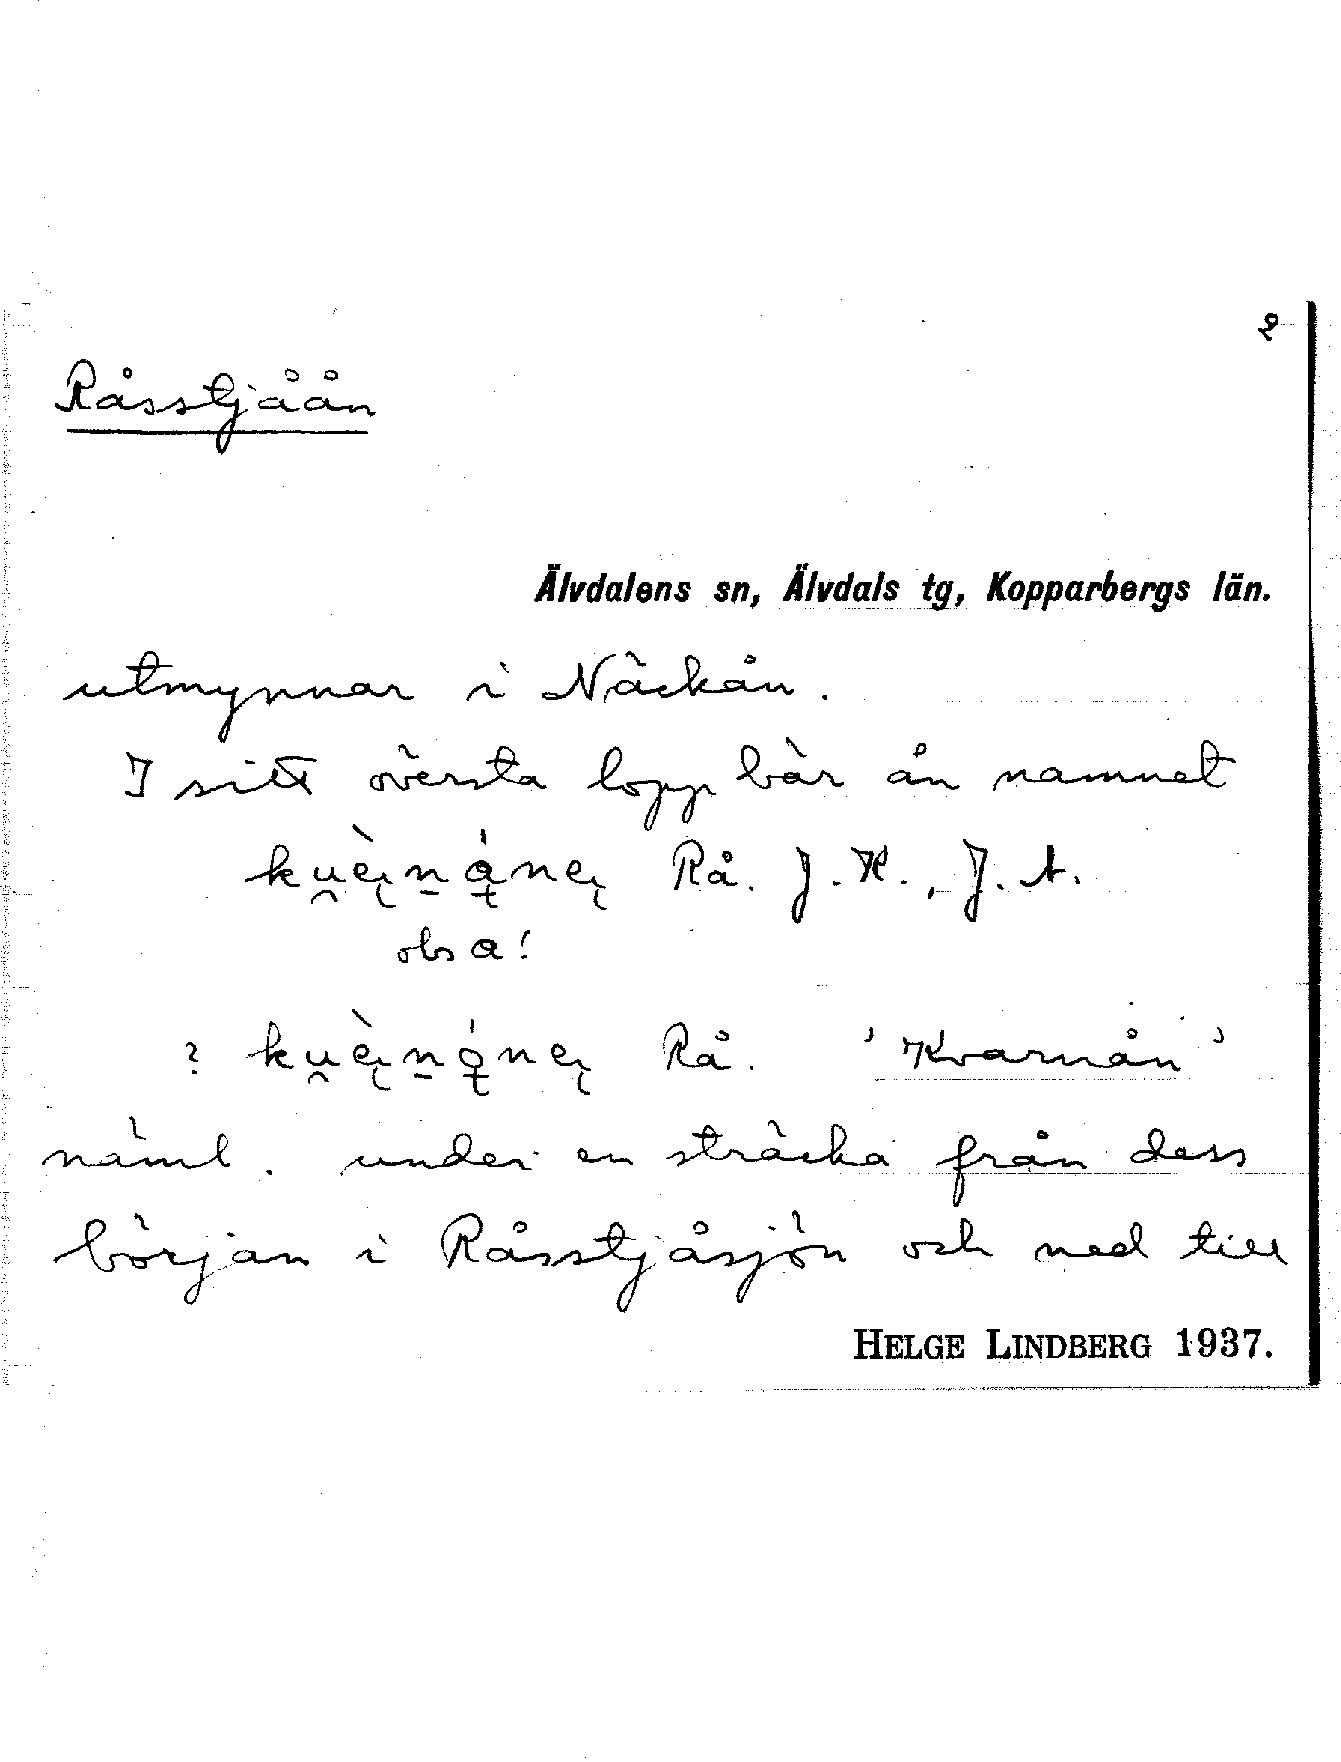 2
Råsstjåån
Älvdalens sn, Älvdals tg, Kopparbergs län.
utmynnar i Näckån.
I sitt översta lopp bär ån namnet
Rå. J. K., J. A.
obs a!
? Rå. 'Kvarnån'
näml. under en sträcka från dess
början i Råsstjåsjön och ned till
HELGE LINDBERG 1937.